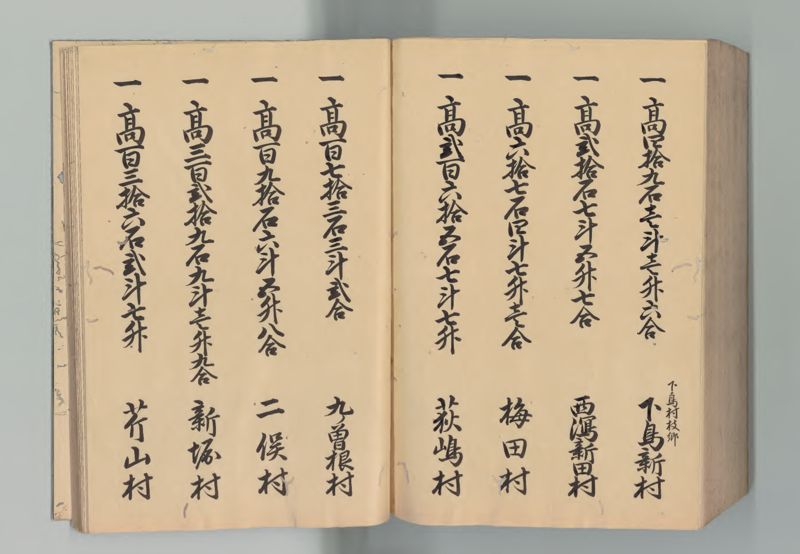 一 高四拾九石壱斗壱升六合
下島村枝郷
下島新村
一 高弐拾石七斗五升七合
西潟新田村
一 高六拾七石四斗七升壱合
梅田村
一 高弐百六拾五石七斗七升
萩嶋村
一 高百七拾三石三斗弐合
九曽根村
一 高百九拾石六斗五升八合
二俣村
一 高三百弐拾九石九斗壱升九合
新堀村
一 高百三拾六石弐斗七升
芹山村